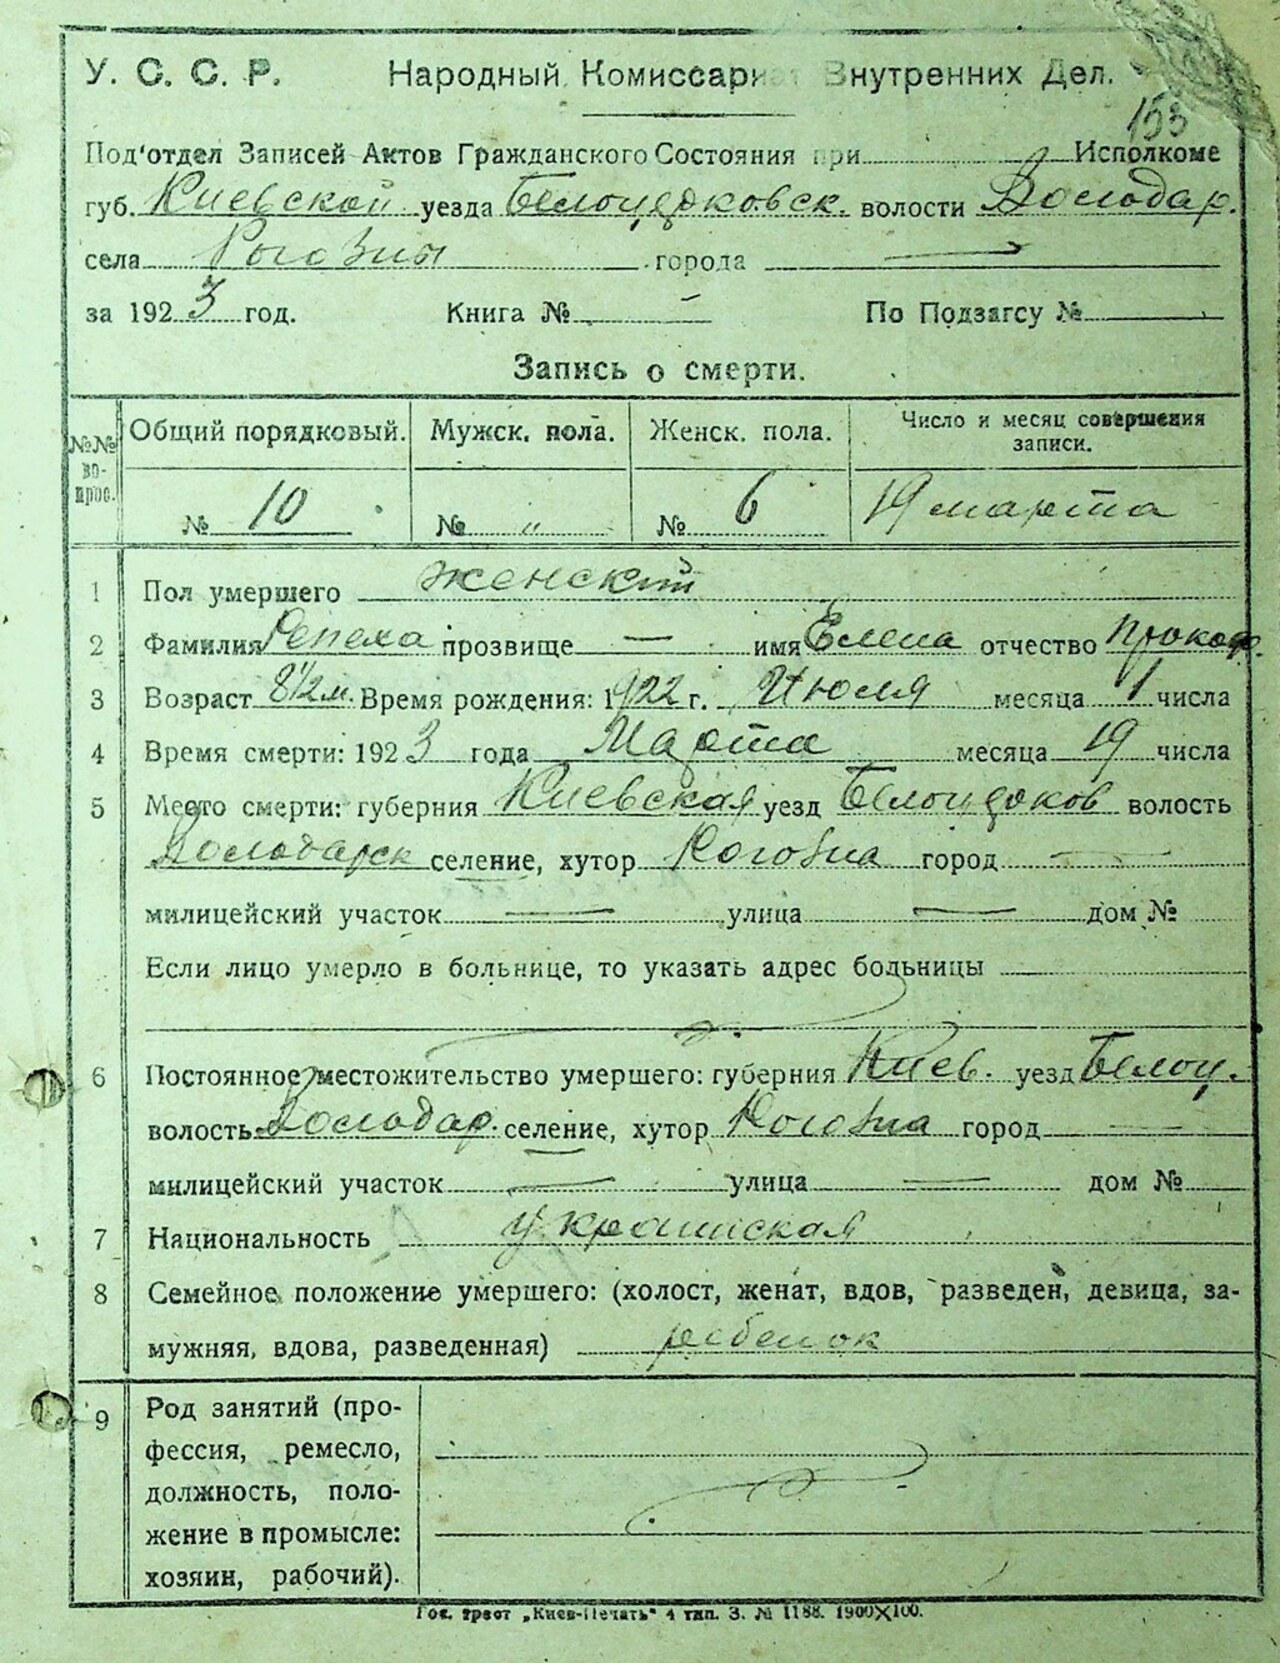 У. С. С. Р. Народный Комиссариат Внутренних Дел.
153
Под'отдел Записей Актов Гражданского Состояния при Исполкоме
губ. Киевской уезда Белоцерковск. волости Володар.
села Роговны города —
за 1923 год. Книга № — По Подзагсу №
Запись о смерти.
№№ вопрос. Общий порядковый. Мужск. пола. Женск. пола. Число и месяц совершения записи.
№ 10 № „ № 6 19 марта
1 Пол умершего женский
2 Фамилия Репеха прозвище — имя Елена отчество Прокоф.
3 Возраст 8 1/2 м. Время рождения: 1922 г. Июля месяца 1 числа
4 Время смерти: 1923 года Марта месяца 19 числа
5 Место смерти: губерния Киевская уезд Белоцерков волость
Володарск селение, хутор Роговна город —
милицейский участок — улица — дом №
Если лицо умерло в больнице, то указать адрес больницы
6 Постоянное местожительство умершего: губерния Киев. уезд Белоц.
волость Володар. селение, хутор Роговна город —
милицейский участок — улица — дом №
7 Национальность украинская
8 Семейное положение умершего: (холост, женат, вдов, разведен, девица, за-
мужняя, вдова, разведенная) ребенок
9 Род занятий (про-
фессия, ремесло,
должность, поло-
жение в промысле:
хозяин, рабочий).
Гос. трест „Киев-Печать" 4 тип. З. № 1188. 1900×100.